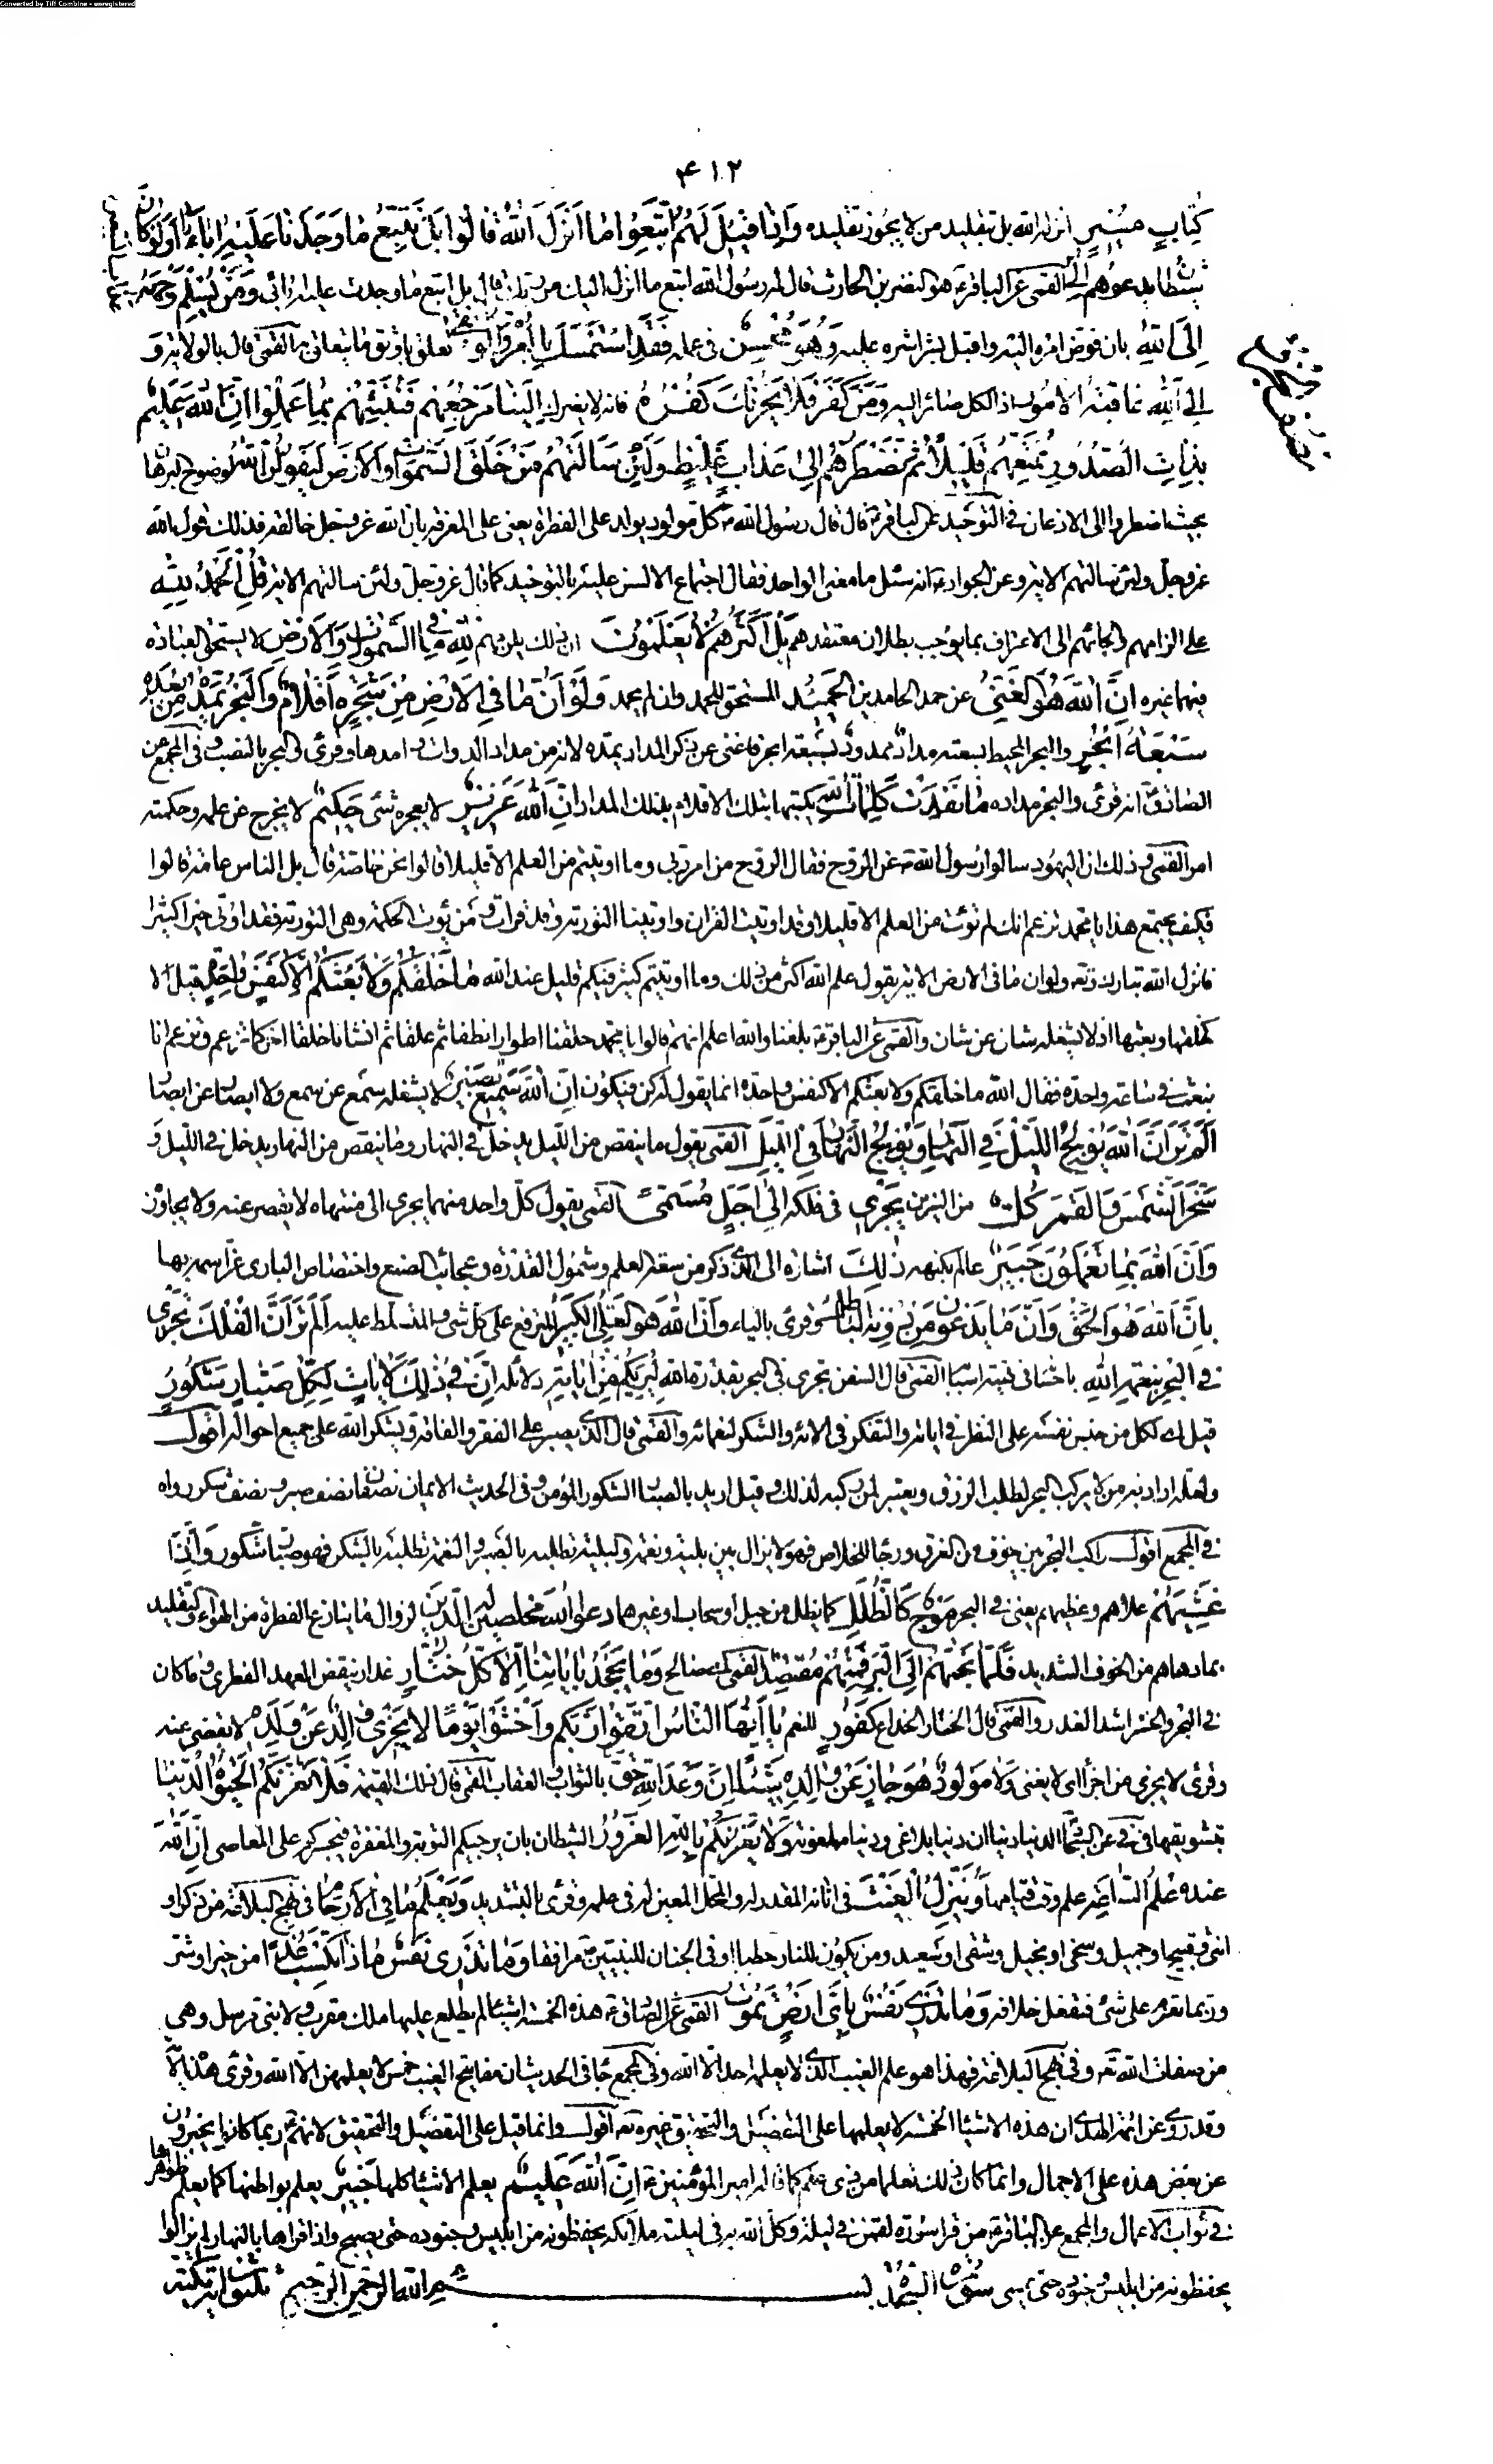 Converted by Tiff Combine - unregistered
۴۱۲
كِتَابٍ مُنِيرٍ انزله الله بل بتقليد من لا يجوز تقليده وَإِذَا قِيلَ لَهُمُ اتَّبِعُوا مَا أَنْزَلَ اللَّهُ قَالُوا بَلْ نَتَّبِعُ مَا وَجَدْنَا عَلَيْهِ آبَاءَنَا أَوَلَوْ كَانَ
الشَّيْطَانُ يَدْعُوهُمْ إِلَى القمى عن الباقر ع هو النضر بن الحارث قال له رسول الله اتبع ما انزل اليك من ربك قال بل اتبع ما وجدت عليه ابائى وَمَنْ يُسْلِمْ وَجْهَهُ
إِلَى اللَّهِ بان فوض امره اليه واقبل بشراشره عليه وَهُوَ مُحْسِنٌ فى عمله فَقَدِ اسْتَمْسَكَ بِالْعُرْوَةِ الْوُثْقَى تعلق باوثق ما يتعلق به القمى قال بالولاية وَ
إِلَى اللَّهِ عَاقِبَةُ الْأُمُورِ اذ الكل صائر اليه وَمَنْ كَفَرَ فَلَا يَحْزُنْكَ كُفْرُهُ فانه لا يضرك إِلَيْنَا مَرْجِعُهُمْ فَنُنَبِّئُهُمْ بِمَا عَمِلُوا إِنَّ اللَّهَ عَلِيمٌ
بِذَاتِ الصُّدُورِ نُمَتِّعُهُمْ قَلِيلًا ثُمَّ نَضْطَرُّهُمْ إِلَى عَذَابٍ غَلِيظٍ وَلَئِنْ سَأَلْتَهُمْ مَنْ خَلَقَ السَّمَوَاتِ وَالْأَرْضَ لَيَقُولُنَّ اللَّهُ لوضوح البرهان
بحيث اضطروا الى الاذعان فى التوحيد عن الباقر ع قال قال رسول الله ص كل مولود يولد على الفطرة يعنى على المعرفة بان الله عز وجل خالقه فذلك قول الله
عز وجل ولئن سالتهم الاية وعن الجواد ع انه سئل ما معنى الواحد فقال اجتماع الالسن عليه بالتوحيد كما قال عز وجل ولئن سالتهم الاية قُلِ الْحَمْدُ لِلَّهِ
على الزامهم والجائهم الى الاعتراف بما يوجب بطلان معتقدهم بَلْ أَكْثَرُهُمْ لَا يَعْلَمُونَ ان ذلك يلزمهم لِلَّهِ مَا فِي السَّمَوَاتِ وَالْأَرْضِ لا يستحق العبادة
فيهما غيره إِنَّ اللَّهَ هُوَ الْغَنِيُّ عن حمد الحامدين الْحَمِيدُ المستحق للحمد وان لم يحمد وَلَوْ أَنَّ مَا فِي الْأَرْضِ مِنْ شَجَرَةٍ أَقْلَامٌ وَالْبَحْرُ يَمُدُّهُ مِنْ بَعْدِهِ
سَبْعَةُ أَبْحُرٍ والبحر المحيط بسعته مدادا ممدود بسبعة ابحر فاغنى عن ذكر المداد يمده لانه من مداد الدوات وامدها وقرئ والبحر بالنصب وفى المجمع عن
الصادق ع انه قرئ والبحر مداده مَا نَفِدَتْ كَلِمَاتُ اللَّهِ بكتبها بتلك الاقلام بذلك المداد إِنَّ اللَّهَ عَزِيزٌ لا يعجزه شئ حَكِيمٌ لا يخرج عن علمه وحكمته
امر القمى وذلك ان اليهود سالوا رسول الله ص عن الروح فقال الروح من امر ربى وما اوتيتم من العلم الا قليلا قالوا نحن خاصة قال بل الناس عامة قالوا
فكيف يجتمع هذا يا محمد تزعم انك لم تؤت من العلم الا قليلا وقد اوتيت القران واوتينا التورية وقد قرات ومن يؤت الحكمة وهى التورية فقد اوتى خيرا كثيرا
فانزل الله تبارك وتعالى ولو ان ما فى الارض الاية يقول علم الله اكثر من ذلك وما اوتيتم كثير فيكم قليل عند الله مَا خَلْقُكُمْ وَلَا بَعْثُكُمْ إِلَّا كَنَفْسٍ وَاحِدَةٍ قيل الا
كخلقها وبعثها اذ لا يشغله شان عن شان والقمى عن الباقر ع بلغنا والله اعلم انهم قالوا يا محمد خلقنا اطوارا نطفا ثم علقا ثم انشانا خلقا اخر كما تزعم وتزعم انا
نبعث فى ساعة واحدة فقال الله ما خلقكم ولا بعثكم الا كنفس واحدة انما يقول له كن فيكون إِنَّ اللَّهَ سَمِيعٌ بَصِيرٌ لا يشغله سمع عن سمع ولا ابصار عن ابصار
أَلَمْ تَرَ أَنَّ اللَّهَ يُولِجُ اللَّيْلَ فِي النَّهَارِ وَيُولِجُ النَّهَارَ فِي اللَّيْلِ القمى يقول ما ينقص من الليل يدخل فى النهار وما ينقص من النهار يدخل فى الليل وَ
سَخَّرَ الشَّمْسَ وَالْقَمَرَ كُلٌّ من النيرين يَجْرِي فى فلكه إِلَى أَجَلٍ مُسَمًّى القمى يقول كل واحد منهما يجرى الى منتهاه لا يقصر عنه ولا يجاوزه
وَأَنَّ اللَّهَ بِمَا تَعْمَلُونَ خَبِيرٌ عالم بكنهه ذَلِكَ اشارة الى الذى ذكر من سعة العلم وشمول القدرة وعجائب الصنع واختصاص البارى عز اسمه بها
بِأَنَّ اللَّهَ هُوَ الْحَقُّ وَأَنَّ مَا يَدْعُونَ مِنْ دُونِهِ الْبَاطِلُ وقرئ بالياء وَأَنَّ اللَّهَ هُوَ الْعَلِيُّ الْكَبِيرُ المترفع على كل شئ والمتسلط عليه أَلَمْ تَرَ أَنَّ الْفُلْكَ تَجْرِي
فِي الْبَحْرِ بِنِعْمَةِ اللَّهِ باحسانه فى تهيئة اسبابه القمى قال السفن تجرى فى البحر بقدرة الله لِيُرِيَكُمْ مِنْ آيَاتِهِ دلائله إِنَّ فِي ذَلِكَ لَآيَاتٍ لِكُلِّ صَبَّارٍ شَكُورٍ
قيل اى لكل من حبس نفسه على النظر فى اياته والتفكر فى الائه والشكر لنعمائه والقمى قال الذى يصبر على الفقر والفاقة ويشكر الله على جميع احواله اقول
ولعله اراد به من لا يركب البحر لطلب الرزق ويعتبر لمن ركبه لذلك وقيل اريد بالصبار الشكور المؤمن وفى الحديث الايمان نصفان نصف صبر ونصف شكر رواه
فى المجمع اقول راكب البحر بين خوف من الغرق ورجاء للخلاص فهو لا يزال بين بلية ونعمة والبلية تطلبه بالصبر والنعمة تطلبه بالشكر فهو صبار شكور وَإِذَا
غَشِيَهُمْ علاهم وغطيهم يعنى فى البحر مَوْجٌ كَالظُّلَلِ كما يظل من جبل او سحاب او غيرهما دَعَوُا اللَّهَ مُخْلِصِينَ لَهُ الدِّينَ لزوال ما ينازع الفطرة من الهواء والتقليد
بما دهاهم من الخوف الشديد فَلَمَّا نَجَّاهُمْ إِلَى الْبَرِّ فَمِنْهُمْ مُقْتَصِدٌ القمى اى صالح وَمَا يَجْحَدُ بِآيَاتِنَا إِلَّا كُلُّ خَتَّارٍ غدار ينقض العهد الفطرى وما كان
فى البحر والختر اشد الغدر والقمى قال الختار الخداع كَفُورٍ للنعم يَا أَيُّهَا النَّاسُ اتَّقُوا رَبَّكُمْ وَاخْشَوْا يَوْمًا لَا يَجْزِي وَالِدٌ عَنْ وَلَدِهِ لا يقضى عنه
وقرئ لا يجزى من اجزأ اى لا يغنى وَلَا مَوْلُودٌ هُوَ جَازٍ عَنْ وَالِدِهِ شَيْئًا إِنَّ وَعْدَ اللَّهِ حَقٌّ بالثواب والعقاب القمى قال ذلك القيمة فَلَا تَغُرَّنَّكُمُ الْحَيَوةُ الدُّنْيَا
الدنيا دنياان دنيا بلاغ ودنيا ملعونة وَلَا يَغُرَّنَّكُمْ بِاللَّهِ الْغَرُورُ الشيطان بان يرجيكم التوبة والمغفرة فيجسركم على المعاصى إِنَّ اللَّهَ
عِنْدَهُ عِلْمُ السَّاعَةِ علم وقت قيامها وَيُنَزِّلُ الْغَيْثَ فى ابانه المقدر له والمحل المعين له فى علمه وقرئ بالتشديد وَيَعْلَمُ مَا فِي الْأَرْحَامِ فى نهج البلاغة من ذكر او
انثى وقبيح او جميل وسخى او بخيل وشقى او سعيد ومن يكون للنار حطبا او فى الجنان للنبيين مرافقا وَمَا تَدْرِي نَفْسٌ مَاذَا تَكْسِبُ غَدًا من خير او شر
وربما تعزم على شئ فتفعل خلافه وَمَا تَدْرِي نَفْسٌ بِأَيِّ أَرْضٍ تَمُوتُ القمى عن الصادق ع هذه الخمسة اشياء لم يطلع عليها ملك مقرب ولا نبى مرسل وهى
من صفات الله تعالى وفى نهج البلاغة فهذا هو علم الغيب الذى لا يعلمه احد الا الله وفى المجمع جاء فى الحديث ان مفاتيح الغيب خمس لا يعلمهن الا الله وقرئ هذه الاية
وقد روى عن ائمة الهدى ان هذه الاشياء الخمسة لا يعلمها على التفصيل والتحقيق غيره تعالى اقول وانما قيل على التفصيل والتحقيق لانهم ربما كانوا يخبرون
عن بعض هذه على الاجمال وانما كان ذلك تعلما من ذى علم كما قال امير المؤمنين ع إِنَّ اللَّهَ عَلِيمٌ يعلم الاشياء كلها خَبِيرٌ يعلم بواطنها كما يعلم ظواهرها
فى ثواب الاعمال والمجمع عن الباقر ع من قرا سورة لقمن فى ليلة وكل الله به فى ليلته ملائكة يحفظونه من ابليس وجنوده حتى يصبح واذا قراها بالنهار لم يزالوا
يحفظونه من ابليس وجنوده حتى يمسى سورة السجدة بسم الله الرحمن الرحيم